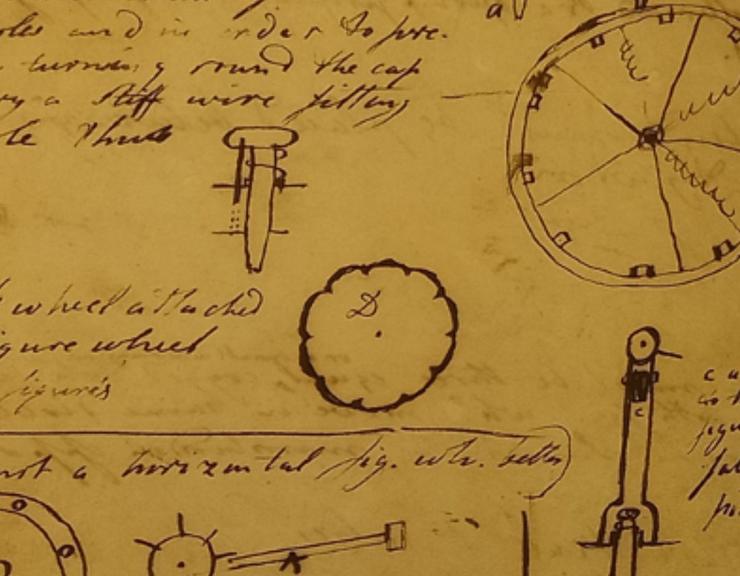 and in order to pre-
turning round the cap
a stiff wire fitting
Thus
wheel attached
figure wheel
figures
D
not a horizontal fig. wh. better
c
c